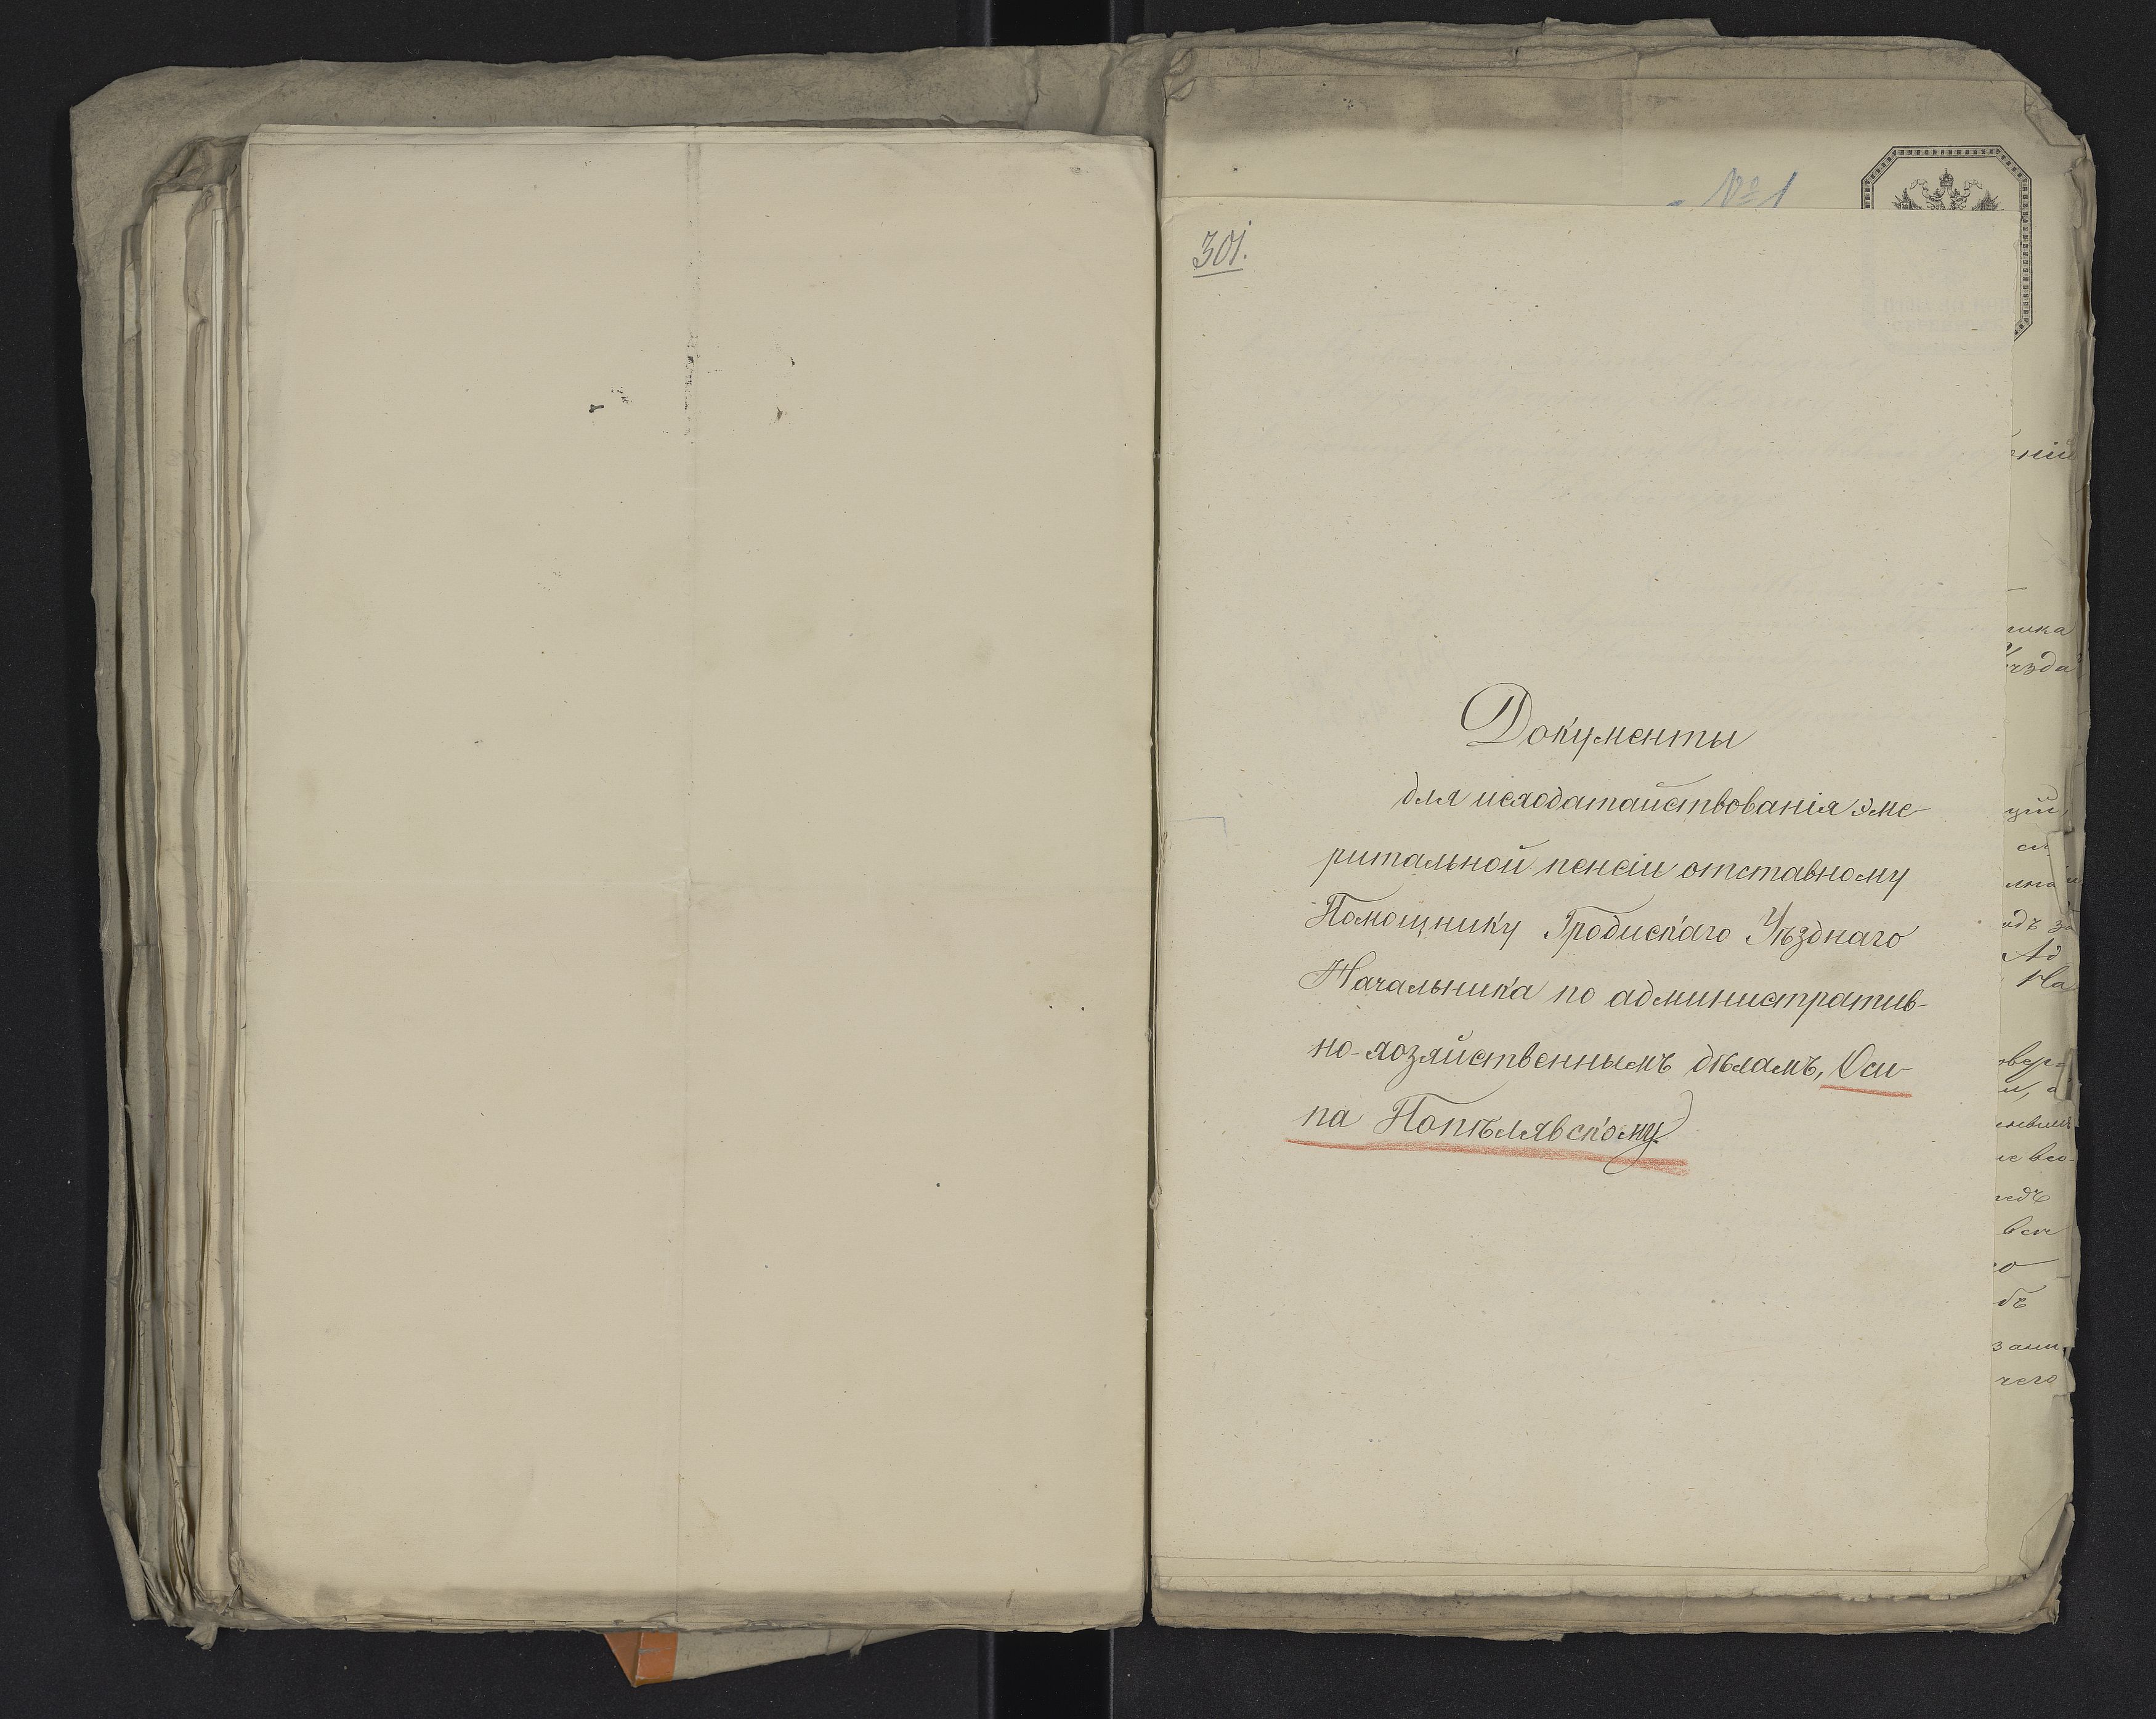 № 1
301.
Документы
для исходатайствованія эме-
ритальной пенсіи отставному
Помощнику Гродискаго Уѣзднаго
Начальника по административ-
но-хозяйственнымъ дѣламъ, Оси-
па Попѣлявскому.